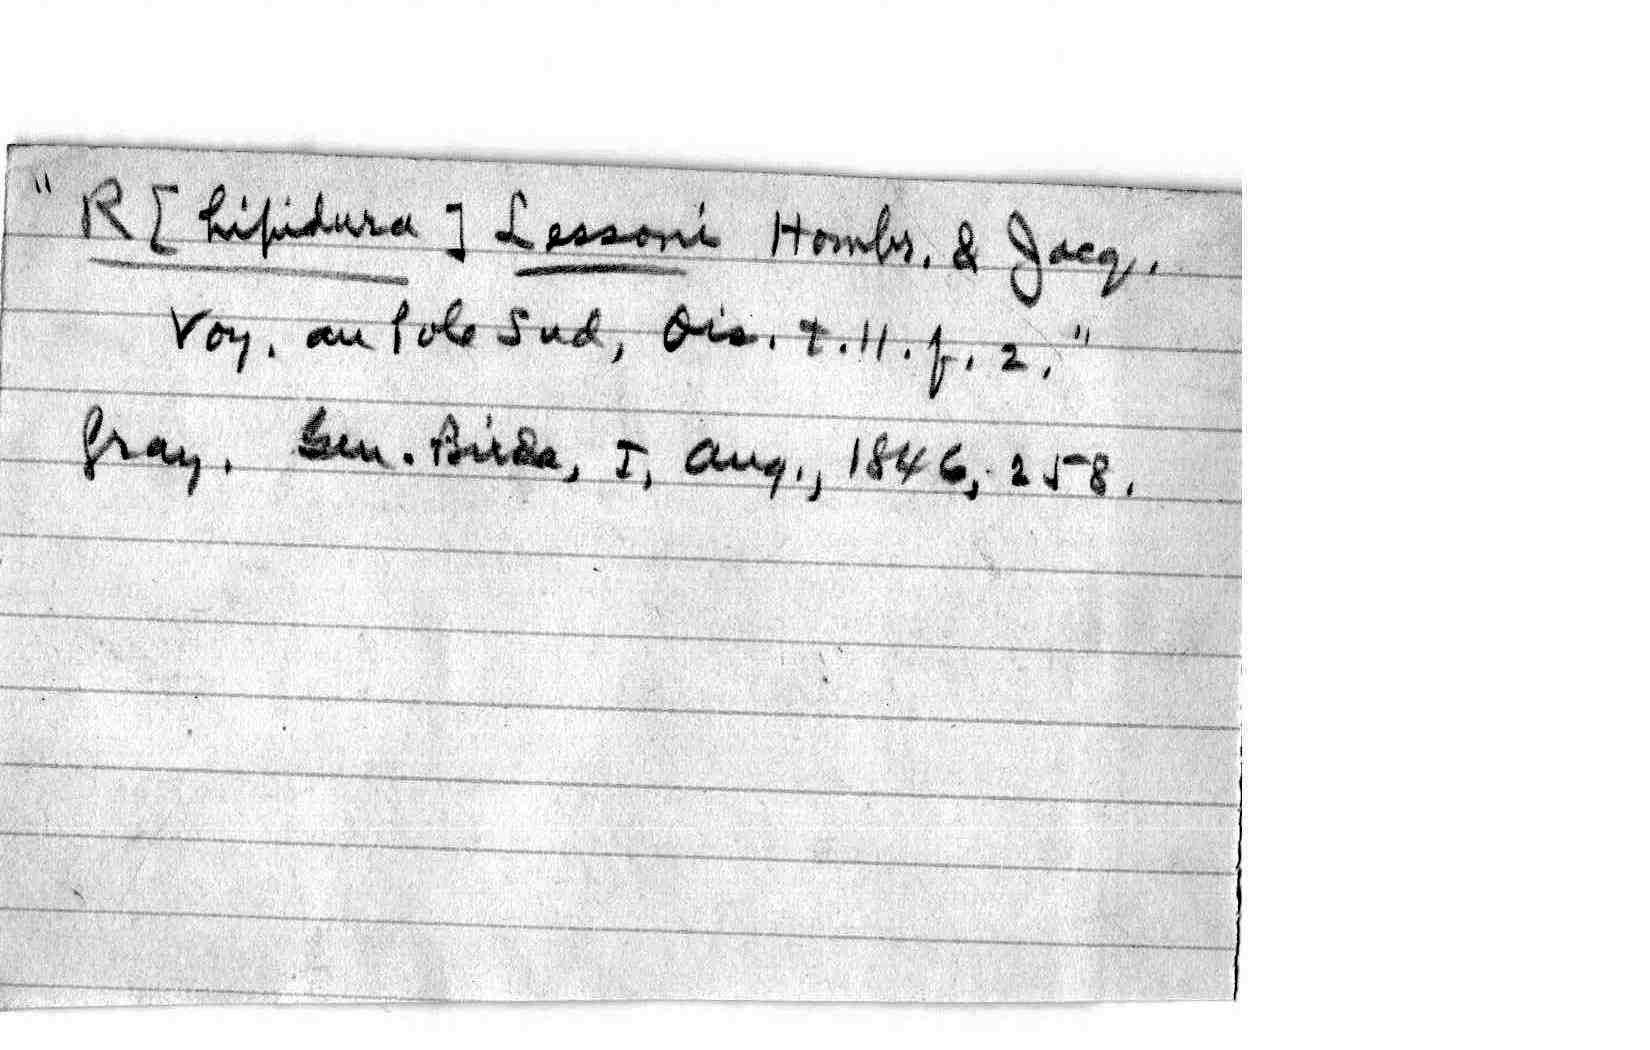 " R[hipidura] Lessoni Hombr. & Jacq.
Voy. au Pole Sud, Ois. t. 11. f. 2."
Gray. Gen. Birds, I, Aug., 1846, 258.